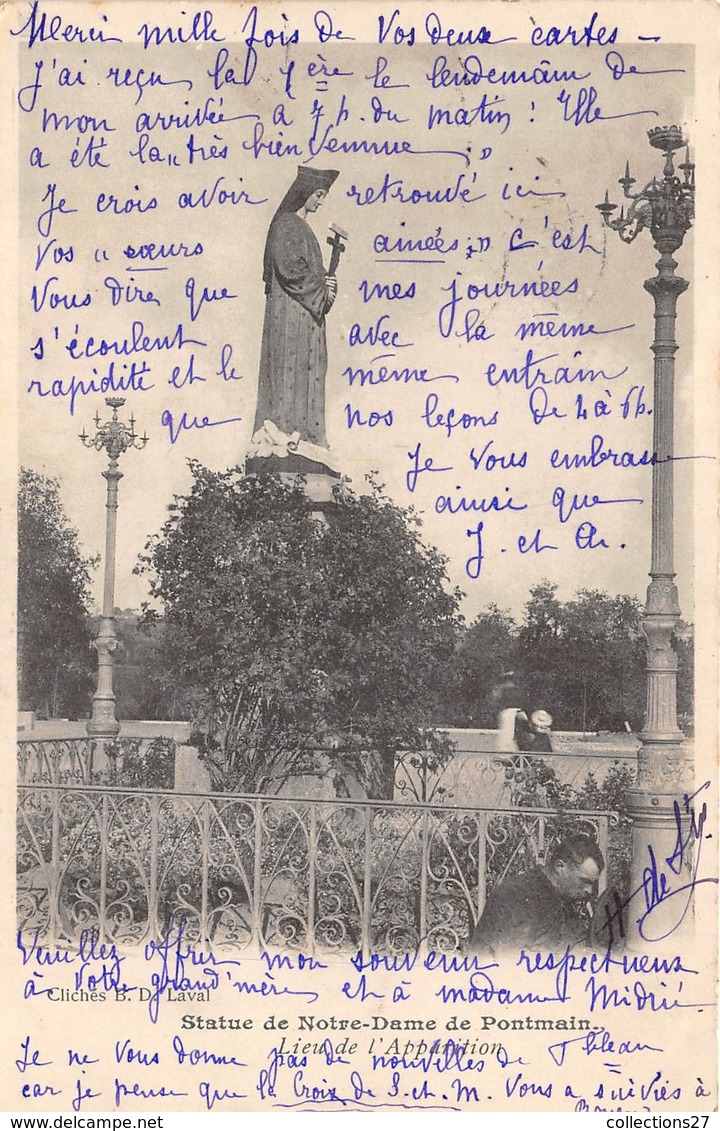 Merci mille fois de Vos deux cartes –
J'ai reçu la 1ère le lendemain de
mon arrivée à 7 h. du matin : Elle
a été la „ très bien venue „
Je crois avoir retrouvé ici
Vos „ sœurs aînées „ c'est
Vous dire que mes journées
s'écoulent avec la même
rapidité et le même entrain
que nos leçons de 4 à 6h.
Je vous embrasse
ainsi que
J. et A.
Veuillez offrir mon souvenir respectueux
à votre grand'mère, et à madame
Clichés B. D. Laval
Statue de Notre-Dame de Pontmain.
Lieu de l'Apparition
Je ne vous donne pas de nouvelles de
car je pense que la Croix de S. et. M. Vous a suivies à
collections27